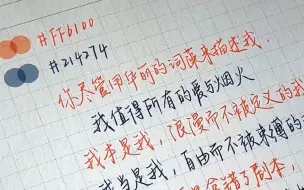 #FF6100
#214274
你尽管用华丽的词藻来描述我,
我值得所有的爱与烟火
我本是我,浪漫而不被定义的我
我当是我,自由而不被束缚的
拿错了剧本,